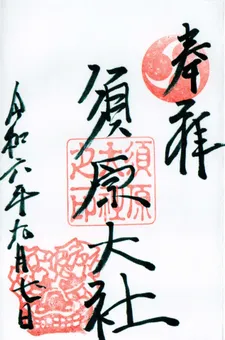 奉拝
須原大社
令和六年九月七日
須原
大社
之印